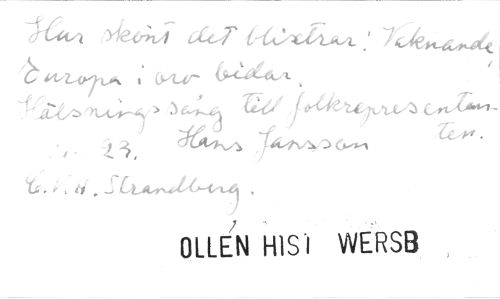 Hur skönt det blixtrar! Vaknande,
Europa i oro bidar.
Hälsningssång till folkrepresentan-
ten.
n. 23. Hans Jansson
C.V.A. Strandberg.
OLLÉN HIST WERSB